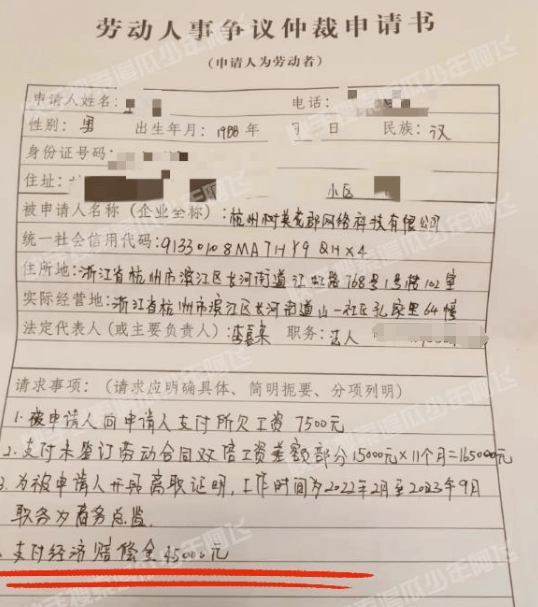 劳动人事争议仲裁申请书
(申请人为劳动者)
申请人姓名: 电话:
性别: 男 出生年月: 1988年 日 民族: 汉
身份证号码:
住址: 小区
被申请人名称(企业全称): 杭州树英龙郡网络科技有限公司
统一社会信用代码: 91330108MA7HY9QHX4
住所地: 浙江省杭州市滨江区长河街道江虹路768号1号楼102室
实际经营地: 浙江省杭州市滨江区长河街道山一社区孔家里64幢
法定代表人(或主要负责人): 职务: 法人
请求事项: (请求应明确具体、简明扼要、分项列明)
1. 被申请人向申请人支付所欠工资 7500元
2. 支付未签订劳动合同双倍工资差额部分15000元×11个月=165000元
3. 为被申请人开具离职证明,工作时间为2022年2月至2023年9月
职务为商务总监.
支付经济赔偿金45000元